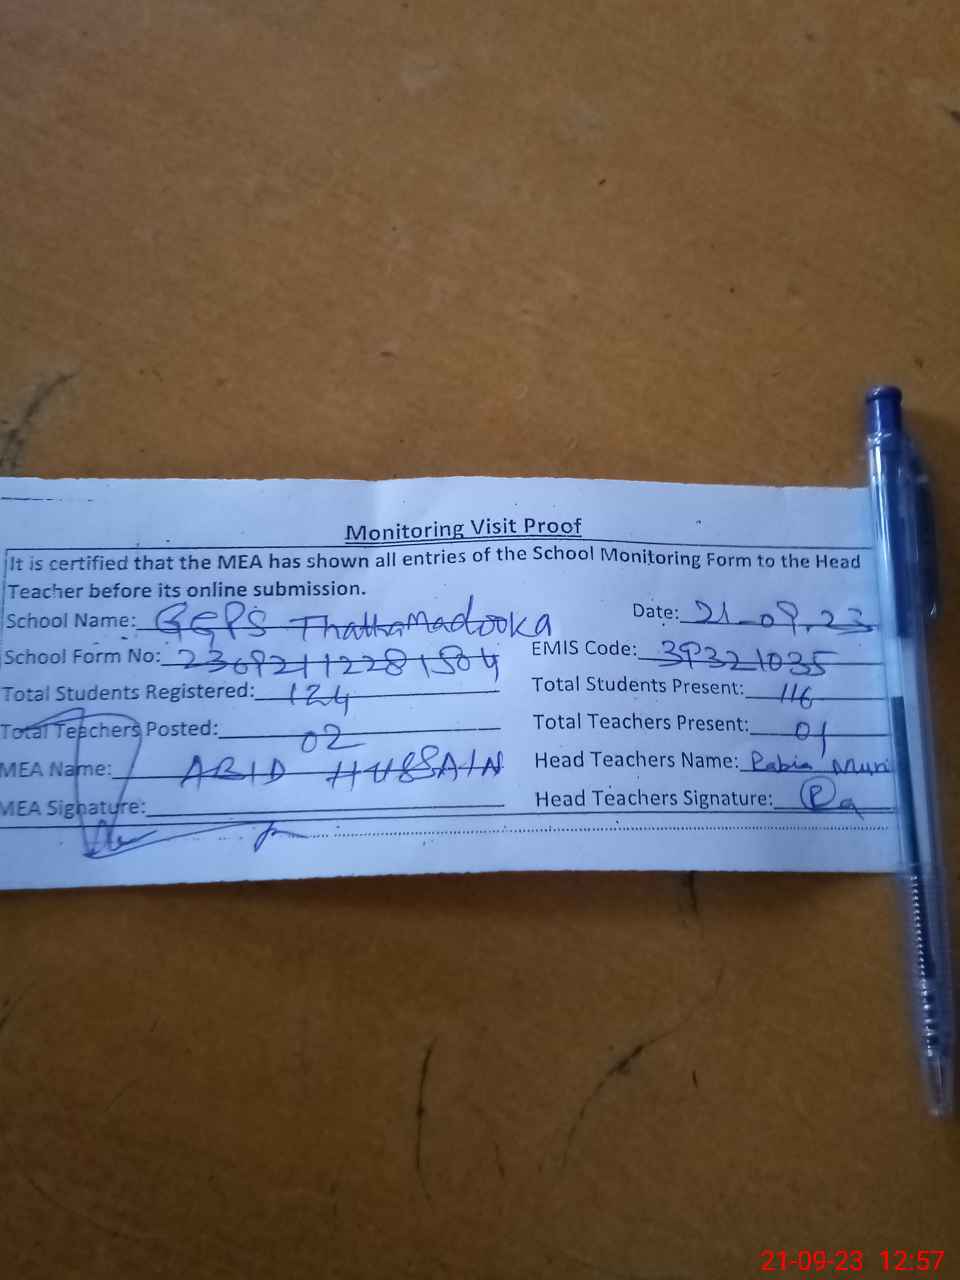 Monitoring Visit Proof
It is certified that the MEA has shown all entries of the School Monitoring Form to the Head
Teacher before its online submission.
School Name: GGPS Thatta Madooka Date: 21-09-23
School Form No: 23092112281504 EMIS Code: 39321035
Total Students Registered: 124 Total Students Present: 116
Total Teachers Posted: 02 Total Teachers Present: 01
MEA Name: ABID HUSSAIN Head Teachers Name: Rabia
MEA Signature: Head Teachers Signature:
21-09-23 12:57